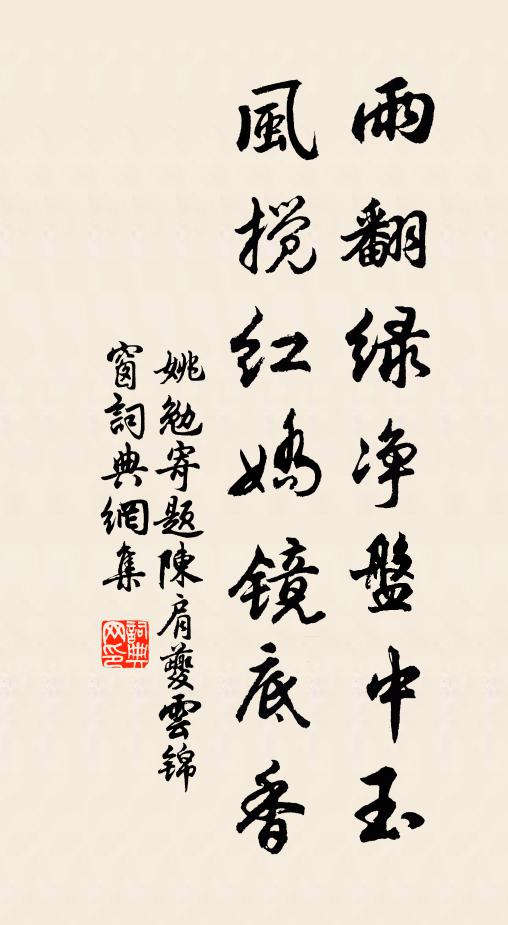 雨翻绿净盤中玉
風搅红嬌镜底香
姚勉寄題陳肩夔雲锦
窗詞典網集
詞典网印